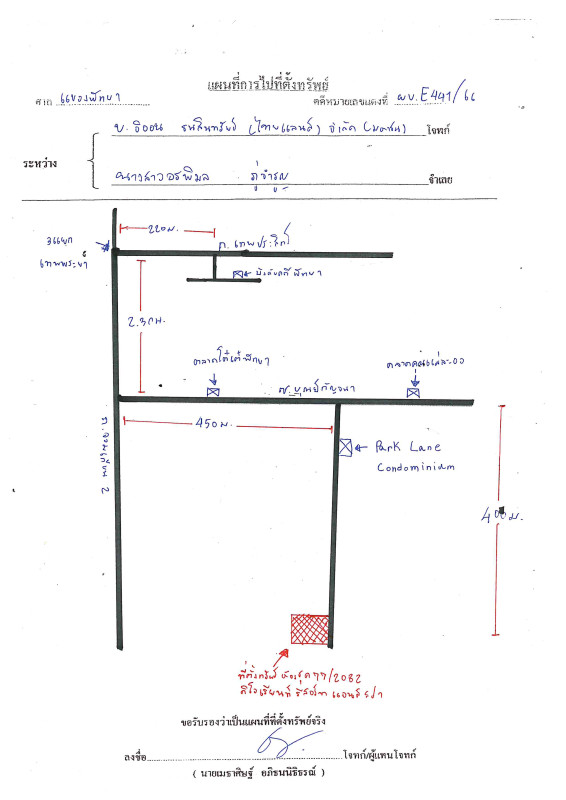 แผนที่การไปที่ตั้งทรัพย์
ศาล แขวงพัทยา คดีหมายเลขแดงที่ ผบ.E441/66
บ. ธนสินทรัพย์ (ไทยแลนด์) จำกัด (มหาชน) โจทก์
ระหว่าง
นางสาวอรพิมล ภู่จำรูญ จำเลย
220 ม.
ถ. เทพประสิทธิ์
สามแยก
เทพพระยา
บังคับคดี พัทยา
2.3 กม.
ตลาดโต้เต้พัทยา
ซ. บุณย์กัญจนา
450 ม.
Park Lane
Condominium
ถ. จอมเทียน 2
400 ม.
ที่ตั้งทรัพย์ ห้องชุด 77/2082
ดิโอเรียนท์ รีสอร์ท แอนด์ สปา
ขอรับรองว่าเป็นแผนที่ที่ตั้งทรัพย์จริง
ลงชื่อ โจทก์/ผู้แทนโจทก์
( นายเมธาศิษฐ์ อภิธนนิธิธรณ์ )